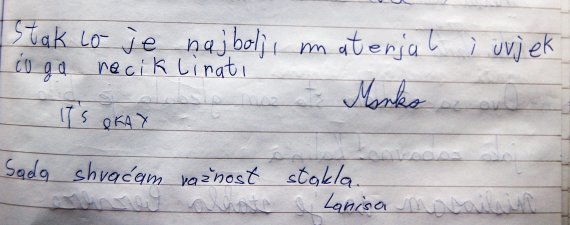 Staklo je najbolji materjal i uvjek
ću ga reciklirati
Marko
IT'S OKAY
Sada shvaćam važnost stakla.
Lanisa